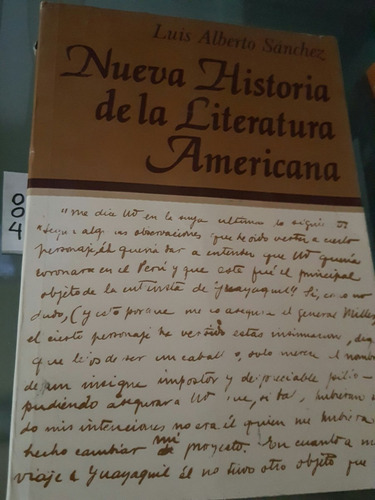 Luis Alberto Sánchez
Nueva Historia
de la Literatura
Americana
00
4
"me dia Ud en la suya ultima lo siguie
"Segun alg. as observaciones que he oido verter a cierto
personaje, él queria dar a entender que Ud queria
coronarse en el Perú y que este fué el principal
objeto de la entrevista de Guayaquil". Si, como no
dudo, (y esto porque me lo asegura el general Miller
el cierto personaje ha vertido estas insinuaciones,
que lejos de ser un caballero, solo merece el nombre
de un insigne impostor y despreciable pillo
pudiendo asegurar a Ud que, si tal hubieran
do mis intenciones no era él quien me hubiera
hecho cambiar mi proyecto. En cuanto a m
viaje a Guayaquil él no tuvo otro objeto que